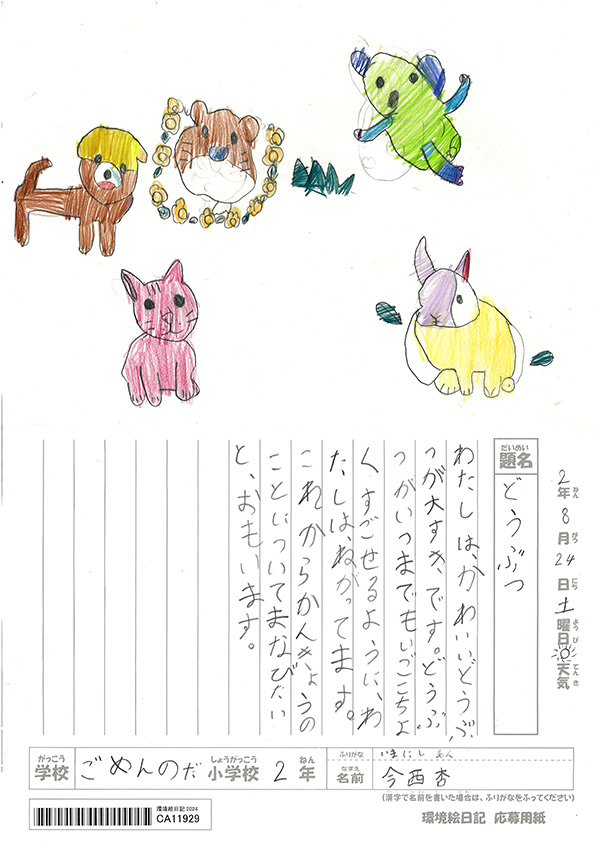 2年ねん8月がつ24日にち土曜日ようび天気てんき
だいめい
題名
どうぶつ
わたしは、かわいいどうぶ
つが大すき、です。どうぶ
つがいつまでもいごこちよ
くすごせるように、わ
たしは、ねがってます。
これからかんきょうの
ことについてまなびたい
と、おもいます。
がっこう しょうがっこう ねん
学校 ごめんのだ 小学校 2年
ふりがな いまにし あん
なまえ
名前 今西杏
(漢字で名前を書いた場合は、ふりがなをふってください)
環境絵日記 2024
CA11929
環境絵日記 応募用紙